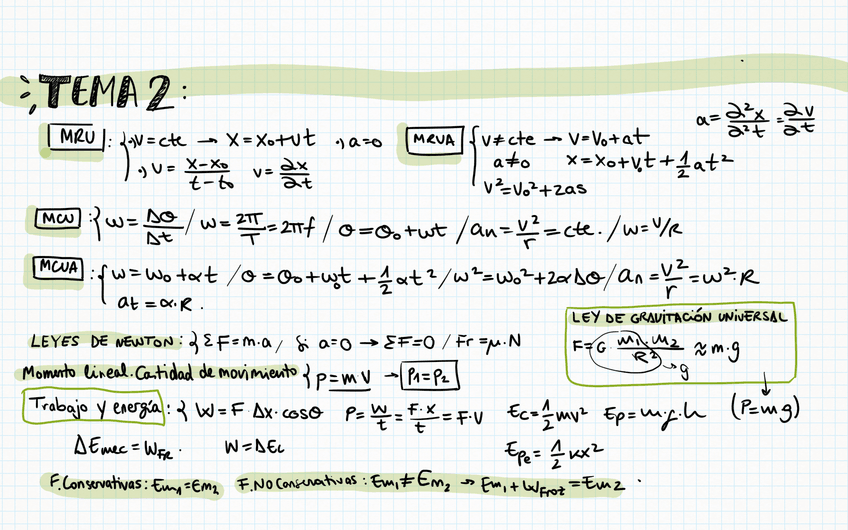 TEMA 2:
MRU : { ·) v = cte → x = x₀ + vt ·) a = 0
·) v = (x - x₀)/(t - t₀) v = ∂x/∂t
MRUA { v ≠ cte → v = v₀ + at
a ≠ 0 x = x₀ + v₀t + 1/2 at²
v² = v₀² + 2as
a = ∂²x/∂²t = ∂v/∂t
MCU : { ω = Δθ/Δt / ω = 2π/T = 2πf / θ = θ₀ + ωt / an = v²/r = cte. / ω = v/R
MCUA : { ω = ω₀ + αt / θ = θ₀ + ω₀t + 1/2 αt² / ω² = ω₀² + 2αΔθ / an = v²/r = ω²·R
at = α·R.
LEYES DE NEWTON : { ΣF = m·a / Si a = 0 → ΣF = 0 / Fr = μ·N
LEY DE GRAVITACIÓN UNIVERSAL
F = G · m₁·m₂/R² ≈ m·g
→ g
(P = mg)
Momento lineal. Cantidad de movimiento { p = mv → P₁ = P₂
Trabajo y energía : { W = F·Δx·cosθ P = W/t = F·x/t = F·v Ec = 1/2 mv² Ep = m·g·h
ΔEmec = WFR. W = ΔEc Epe = 1/2 kx²
F. Conservativas : Em₁ = Em₂ F. No Conservativas : Em₁ ≠ Em₂ → Em₁ + WFroz = Em2